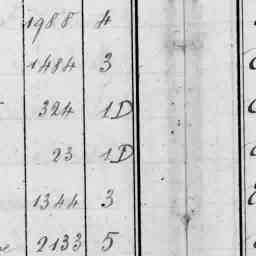 1988 4
1484 3
324 1D
23 1D
1344 3
2133 5